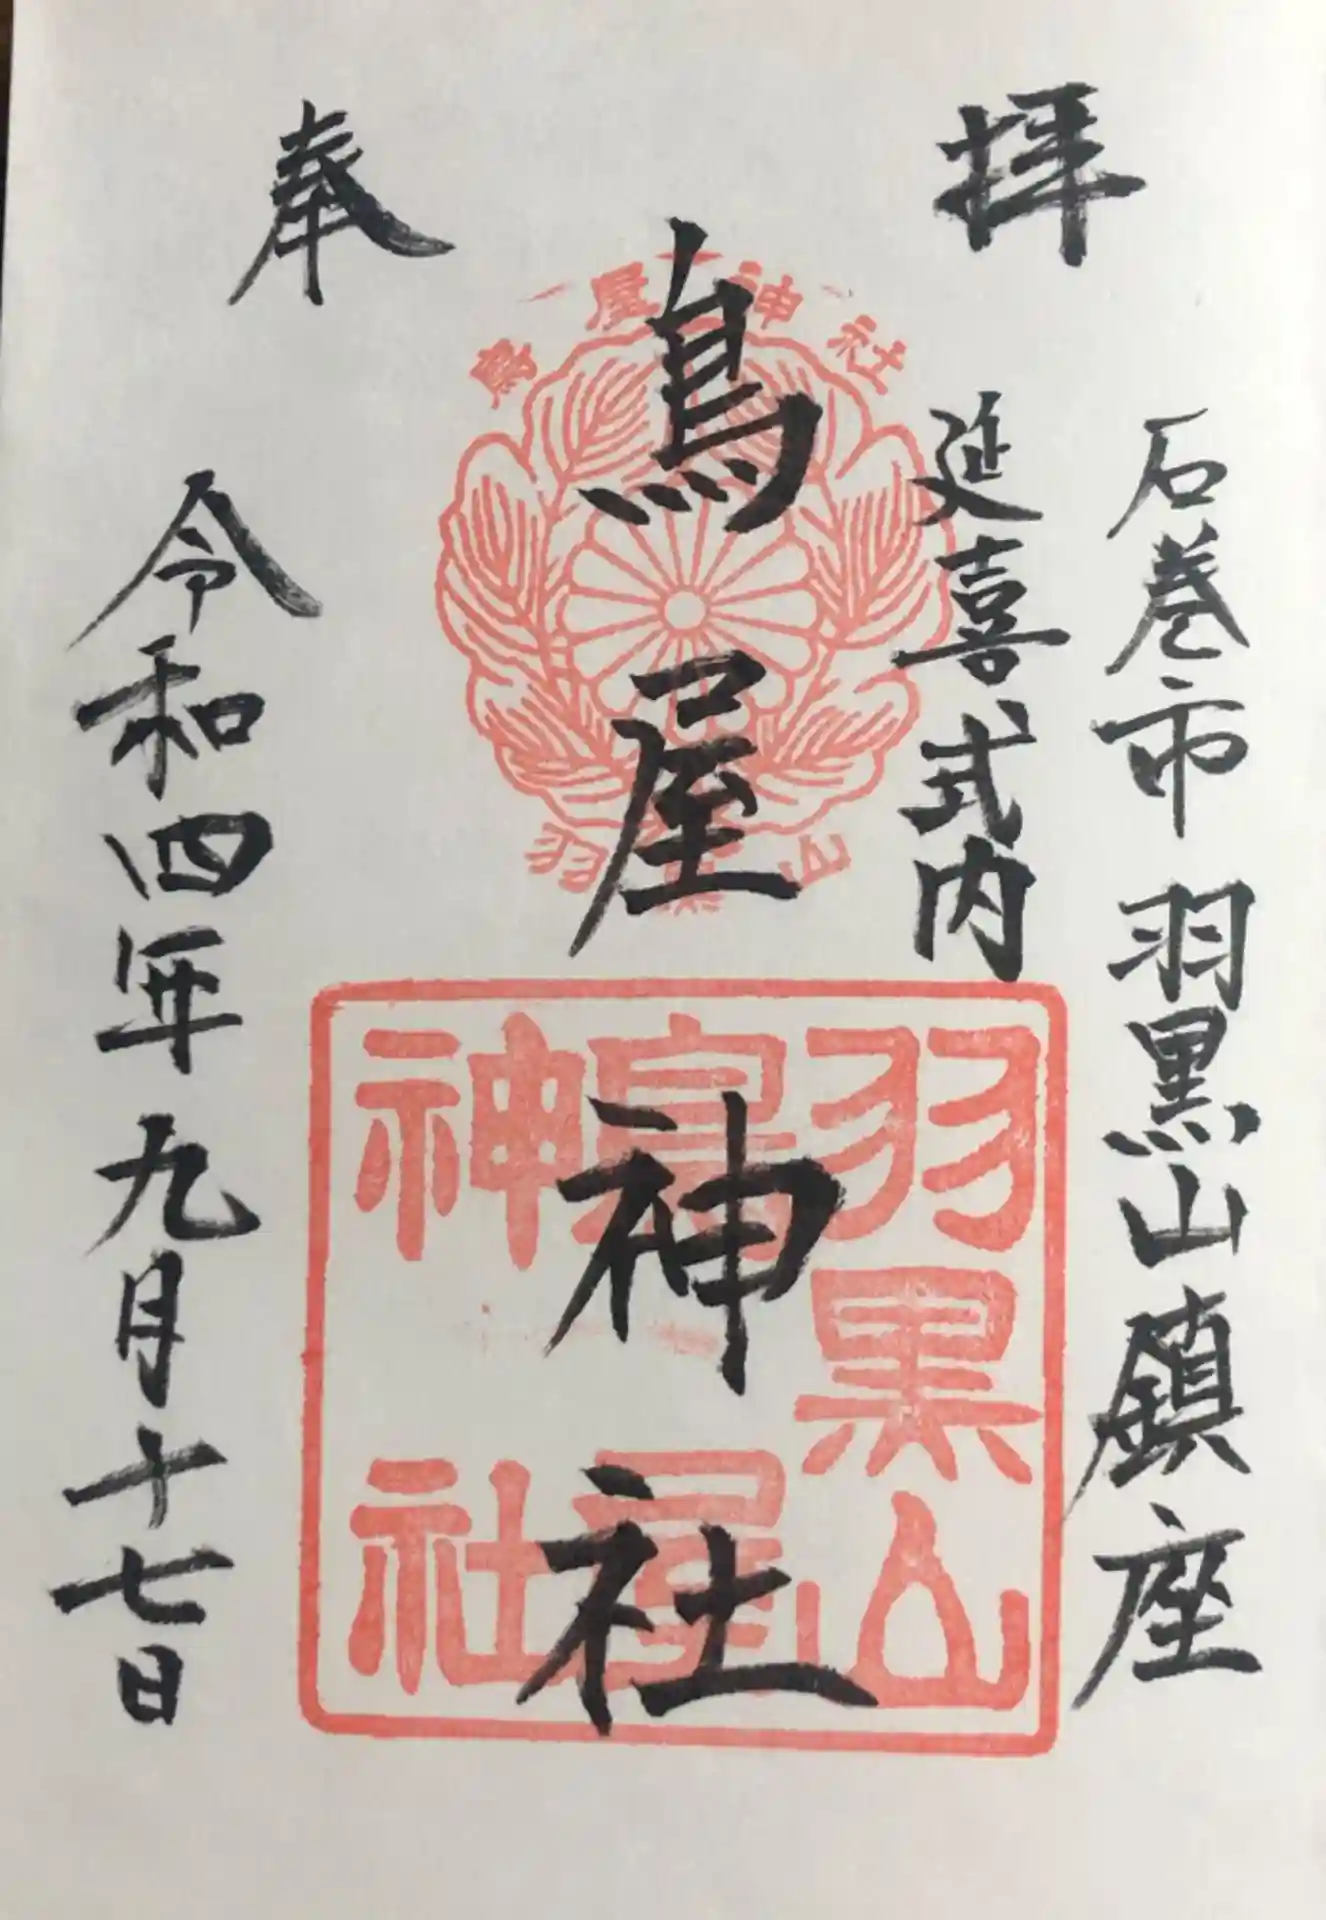 奉拝
石巻市 羽黒山鎮座
延喜式内
鳥屋神社
令和四年九月十七日
鳥屋神社
羽黒山
羽黒山
鳥屋
神社